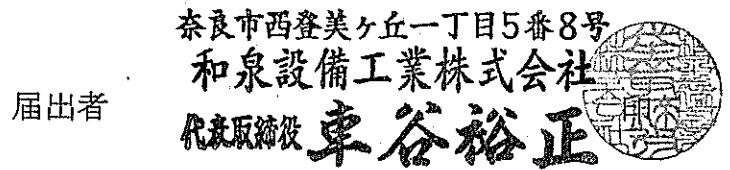 奈良市西登美ヶ丘一丁目5番8号
和泉設備工業株式会社
届出者
代表取締役 車谷裕正